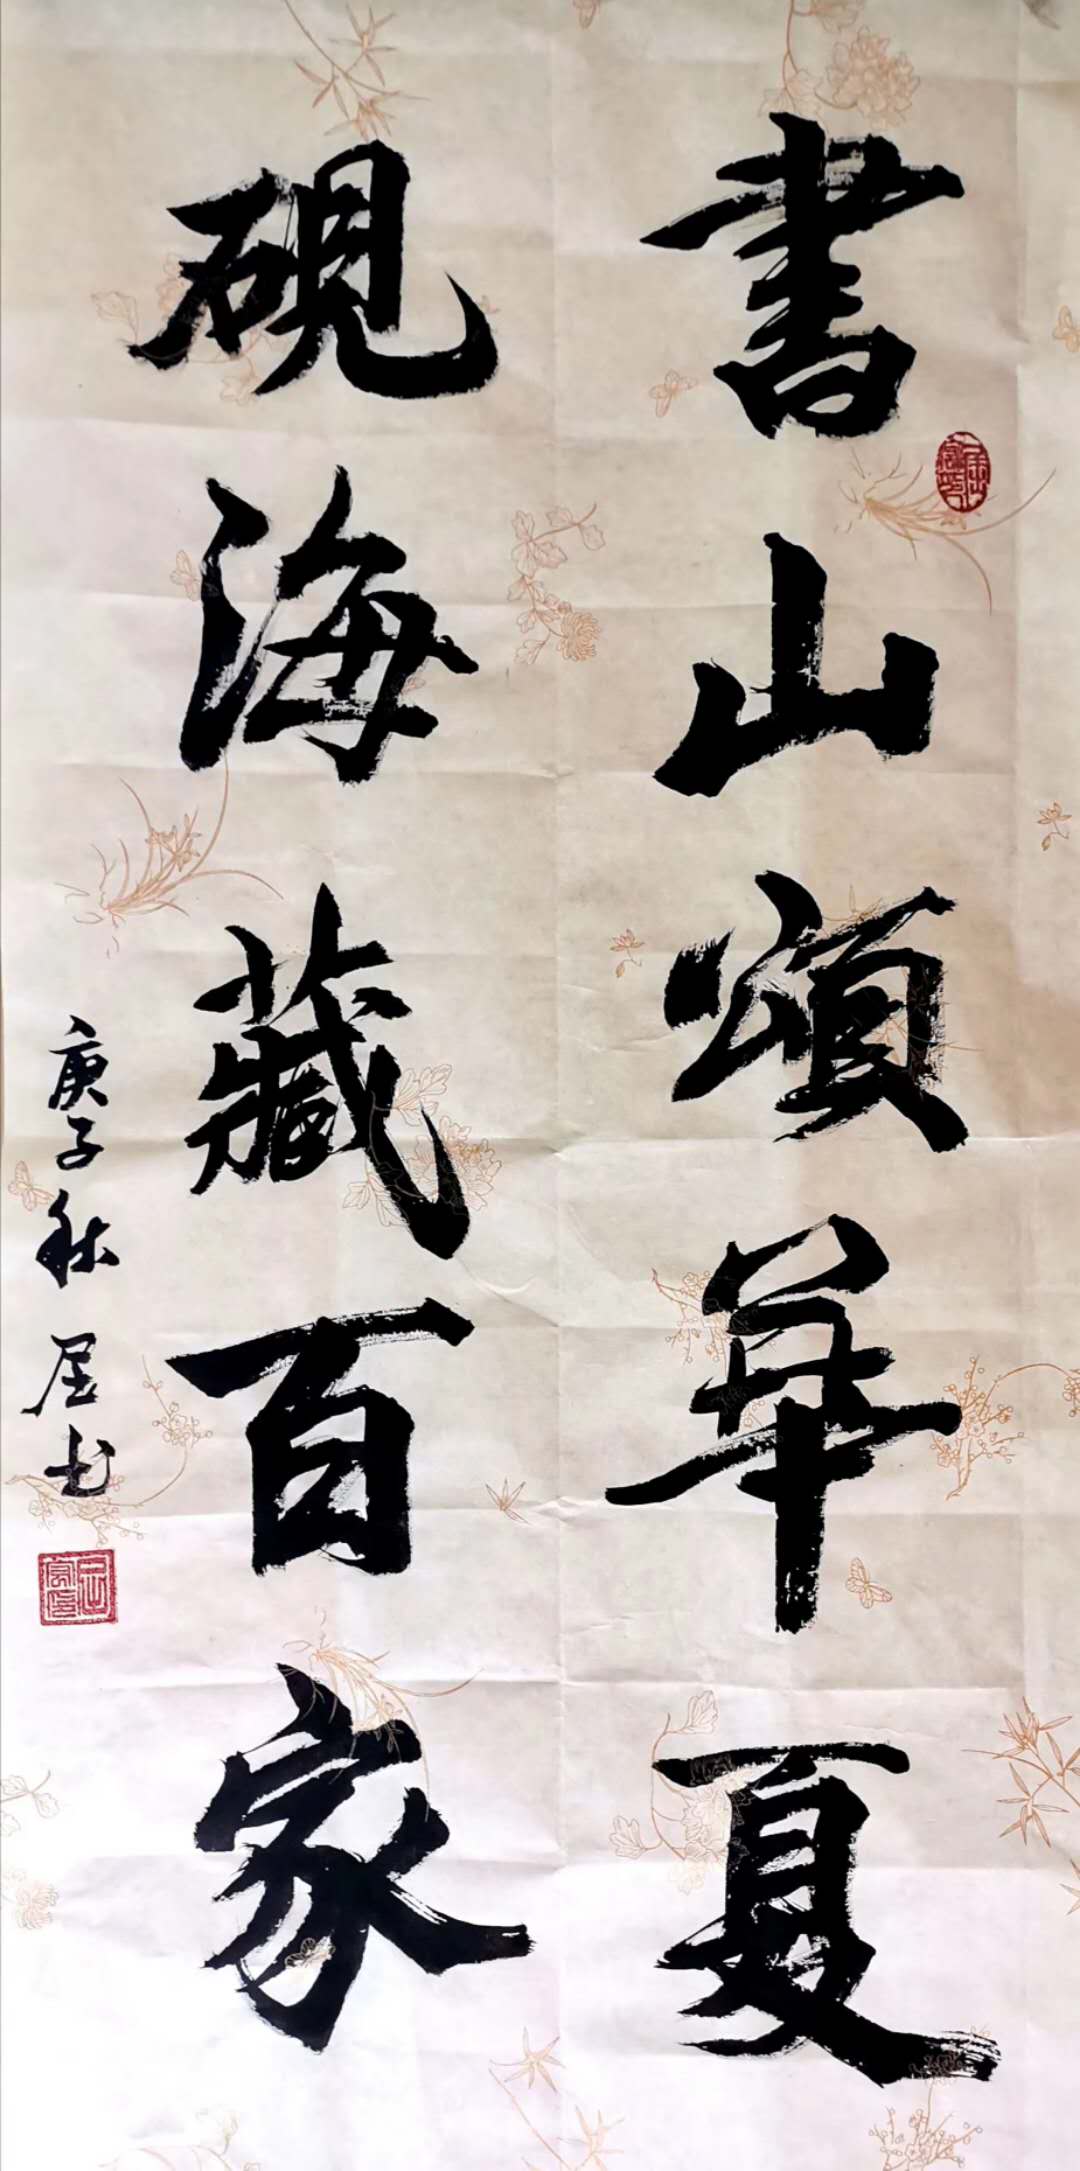 書山頌華夏
硯海藏百家
庚子秋